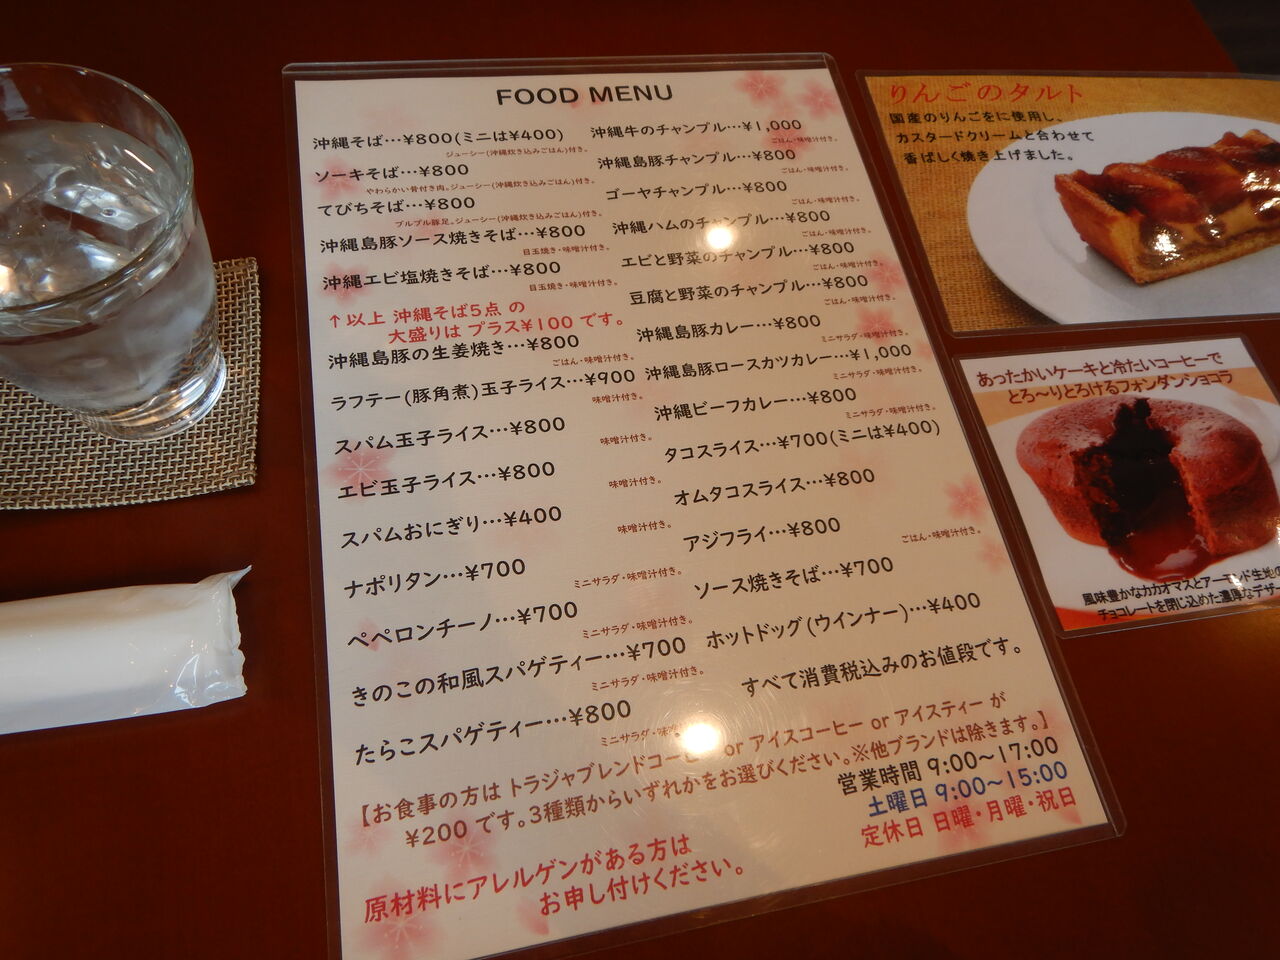 FOOD MENU
沖縄そば…¥800(ミニは¥400)
ジューシー(沖縄炊き込みごはん)付き。
ソーキそば…¥800
やわらかい骨付き肉。ジューシー(沖縄炊き込みごはん)付き。
てびちそば…¥800
プルプル豚足。ジューシー(沖縄炊き込みごはん)付き。
沖縄島豚ソース焼きそば…¥800
目玉焼き・味噌汁付き。
沖縄エビ塩焼きそば…¥800
目玉焼き・味噌汁付き。
↑以上 沖縄そば5点 の
大盛りは プラス¥100 です。
沖縄島豚の生姜焼き…¥800
ごはん・味噌汁付き。
ラフテー(豚角煮)玉子ライス…¥900
味噌汁付き。
スパム玉子ライス…¥800
味噌汁付き。
エビ玉子ライス…¥800
味噌汁付き。
スパムおにぎり…¥400
味噌汁付き。
ナポリタン…¥700
ミニサラダ・味噌汁付き。
ペペロンチーノ…¥700
ミニサラダ・味噌汁付き。
きのこの和風スパゲティー…¥700
ミニサラダ・味噌汁付き。
たらこスパゲティー…¥800
ミニサラダ・味噌
沖縄牛のチャンプル…¥1,000
ごはん・味噌汁付き。
沖縄島豚チャンプル…¥800
ごはん・味噌汁付き。
ゴーヤチャンプル…¥800
ごはん・味噌汁付き。
沖縄ハムのチャンプル…¥800
ごはん・味噌汁付き。
エビと野菜のチャンプル…¥800
ごはん・味噌汁付き。
豆腐と野菜のチャンプル…¥800
ごはん・味噌汁付き。
沖縄島豚カレー…¥800
ミニサラダ・味噌汁付き。
沖縄島豚ロースカツカレー…¥1,000
ミニサラダ・味噌汁付き。
沖縄ビーフカレー…¥800
ミニサラダ・味噌汁付き。
タコスライス…¥700(ミニは¥400)
オムタコスライス…¥800
アジフライ…¥800
ごはん・味噌汁付き。
ソース焼きそば…¥700
ホットドッグ(ウインナー)…¥400
すべて消費税込みのお値段です。
【お食事の方は トラジャブレンドコーヒー or アイスコーヒー or アイスティー が
¥200 です。3種類からいずれかをお選びください。※他ブランドは除きます。】
営業時間 9:00〜17:00
土曜日 9:00〜15:00
定休日 日曜・月曜・祝日
原材料にアレルゲンがある方は
お申し付けください。
りんごのタルト
国産のりんごをに使用し、
カスタードクリームと合わせて
香ばしく焼き上げました。
あったかいケーキと冷たいコーヒーで
とろ〜りとろけるフォンダンショコラ
風味豊かなカカオマスとアーモンド生地の
チョコレートを閉じ込めた濃厚なデザー